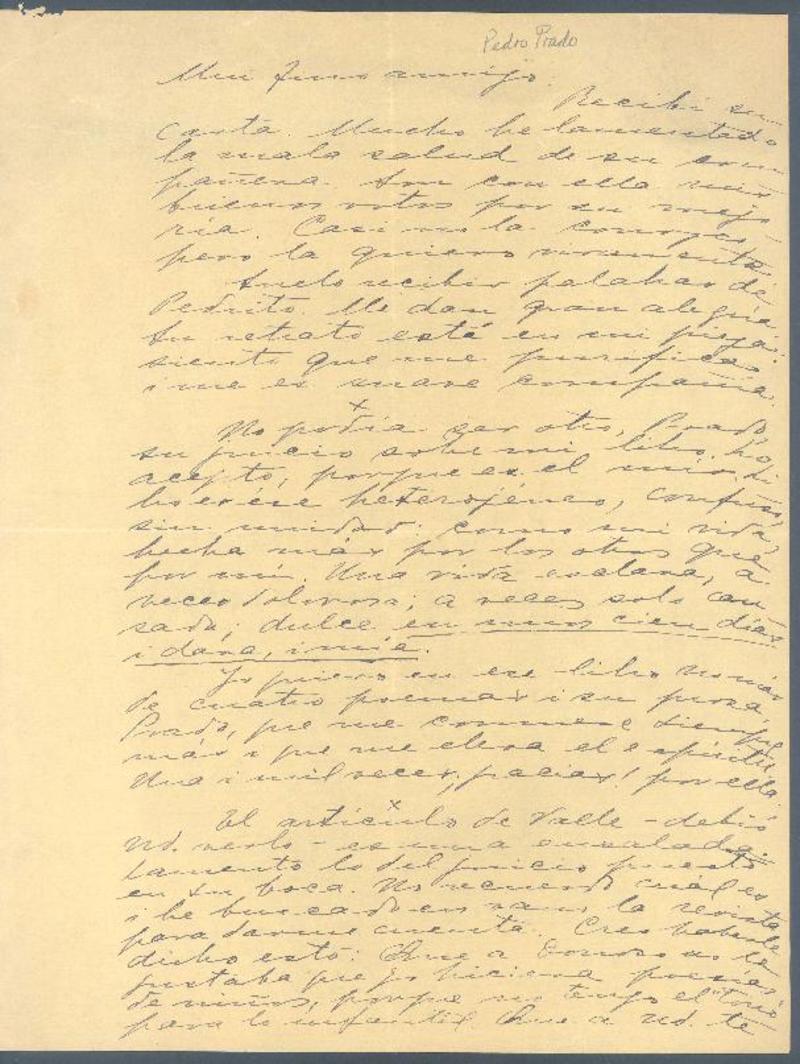 Pedro Prado
Mui fino amigo:
Recibí su
carta. Mucho he lamentado
la mala salud de su com
pañera. Van con ella mis
buenos votos por su mejo
ría. Casi no la conozco
pero la quiero vivamente.
Suelo recibir palabras de
Pedrito. Me dan gran alegría.
Su retrato está en mi pieza:
siento que me purifica
i me es suave compañía.
x
No podía ser otro, Prado,
su juicio sobre mi libro. Lo
acepto, porque es el mío. Li
bro es ése heterojéneo, confuso,
sin unidad: como mi vida,
hecha más por los otros que
por mí. Una vida esclava, a
veces dolorosa; a veces solo can
sada; dulce en unos cien días
i dara, i mía.
Yo quiero en ese libro no más
de cuatro poemas i su prosa,
Prado, que me conmueve siempre
más i que me eleva el espíritu.
Una i mil veces, gracias! por ella.
x
El artículo de Valle - debió
Ud. verlo - es una ensalada.
Lamento lo del juicio puesto
en su boca. No recuerdo cuál es
i he buscado en vano la revista
para darme cuenta. Creo haberle
dicho esto: Que a Donoso no le
gustaba que yo hiciera poesías
de niños, porque no tengo el "tono"
para lo infantil Que a Ud. te